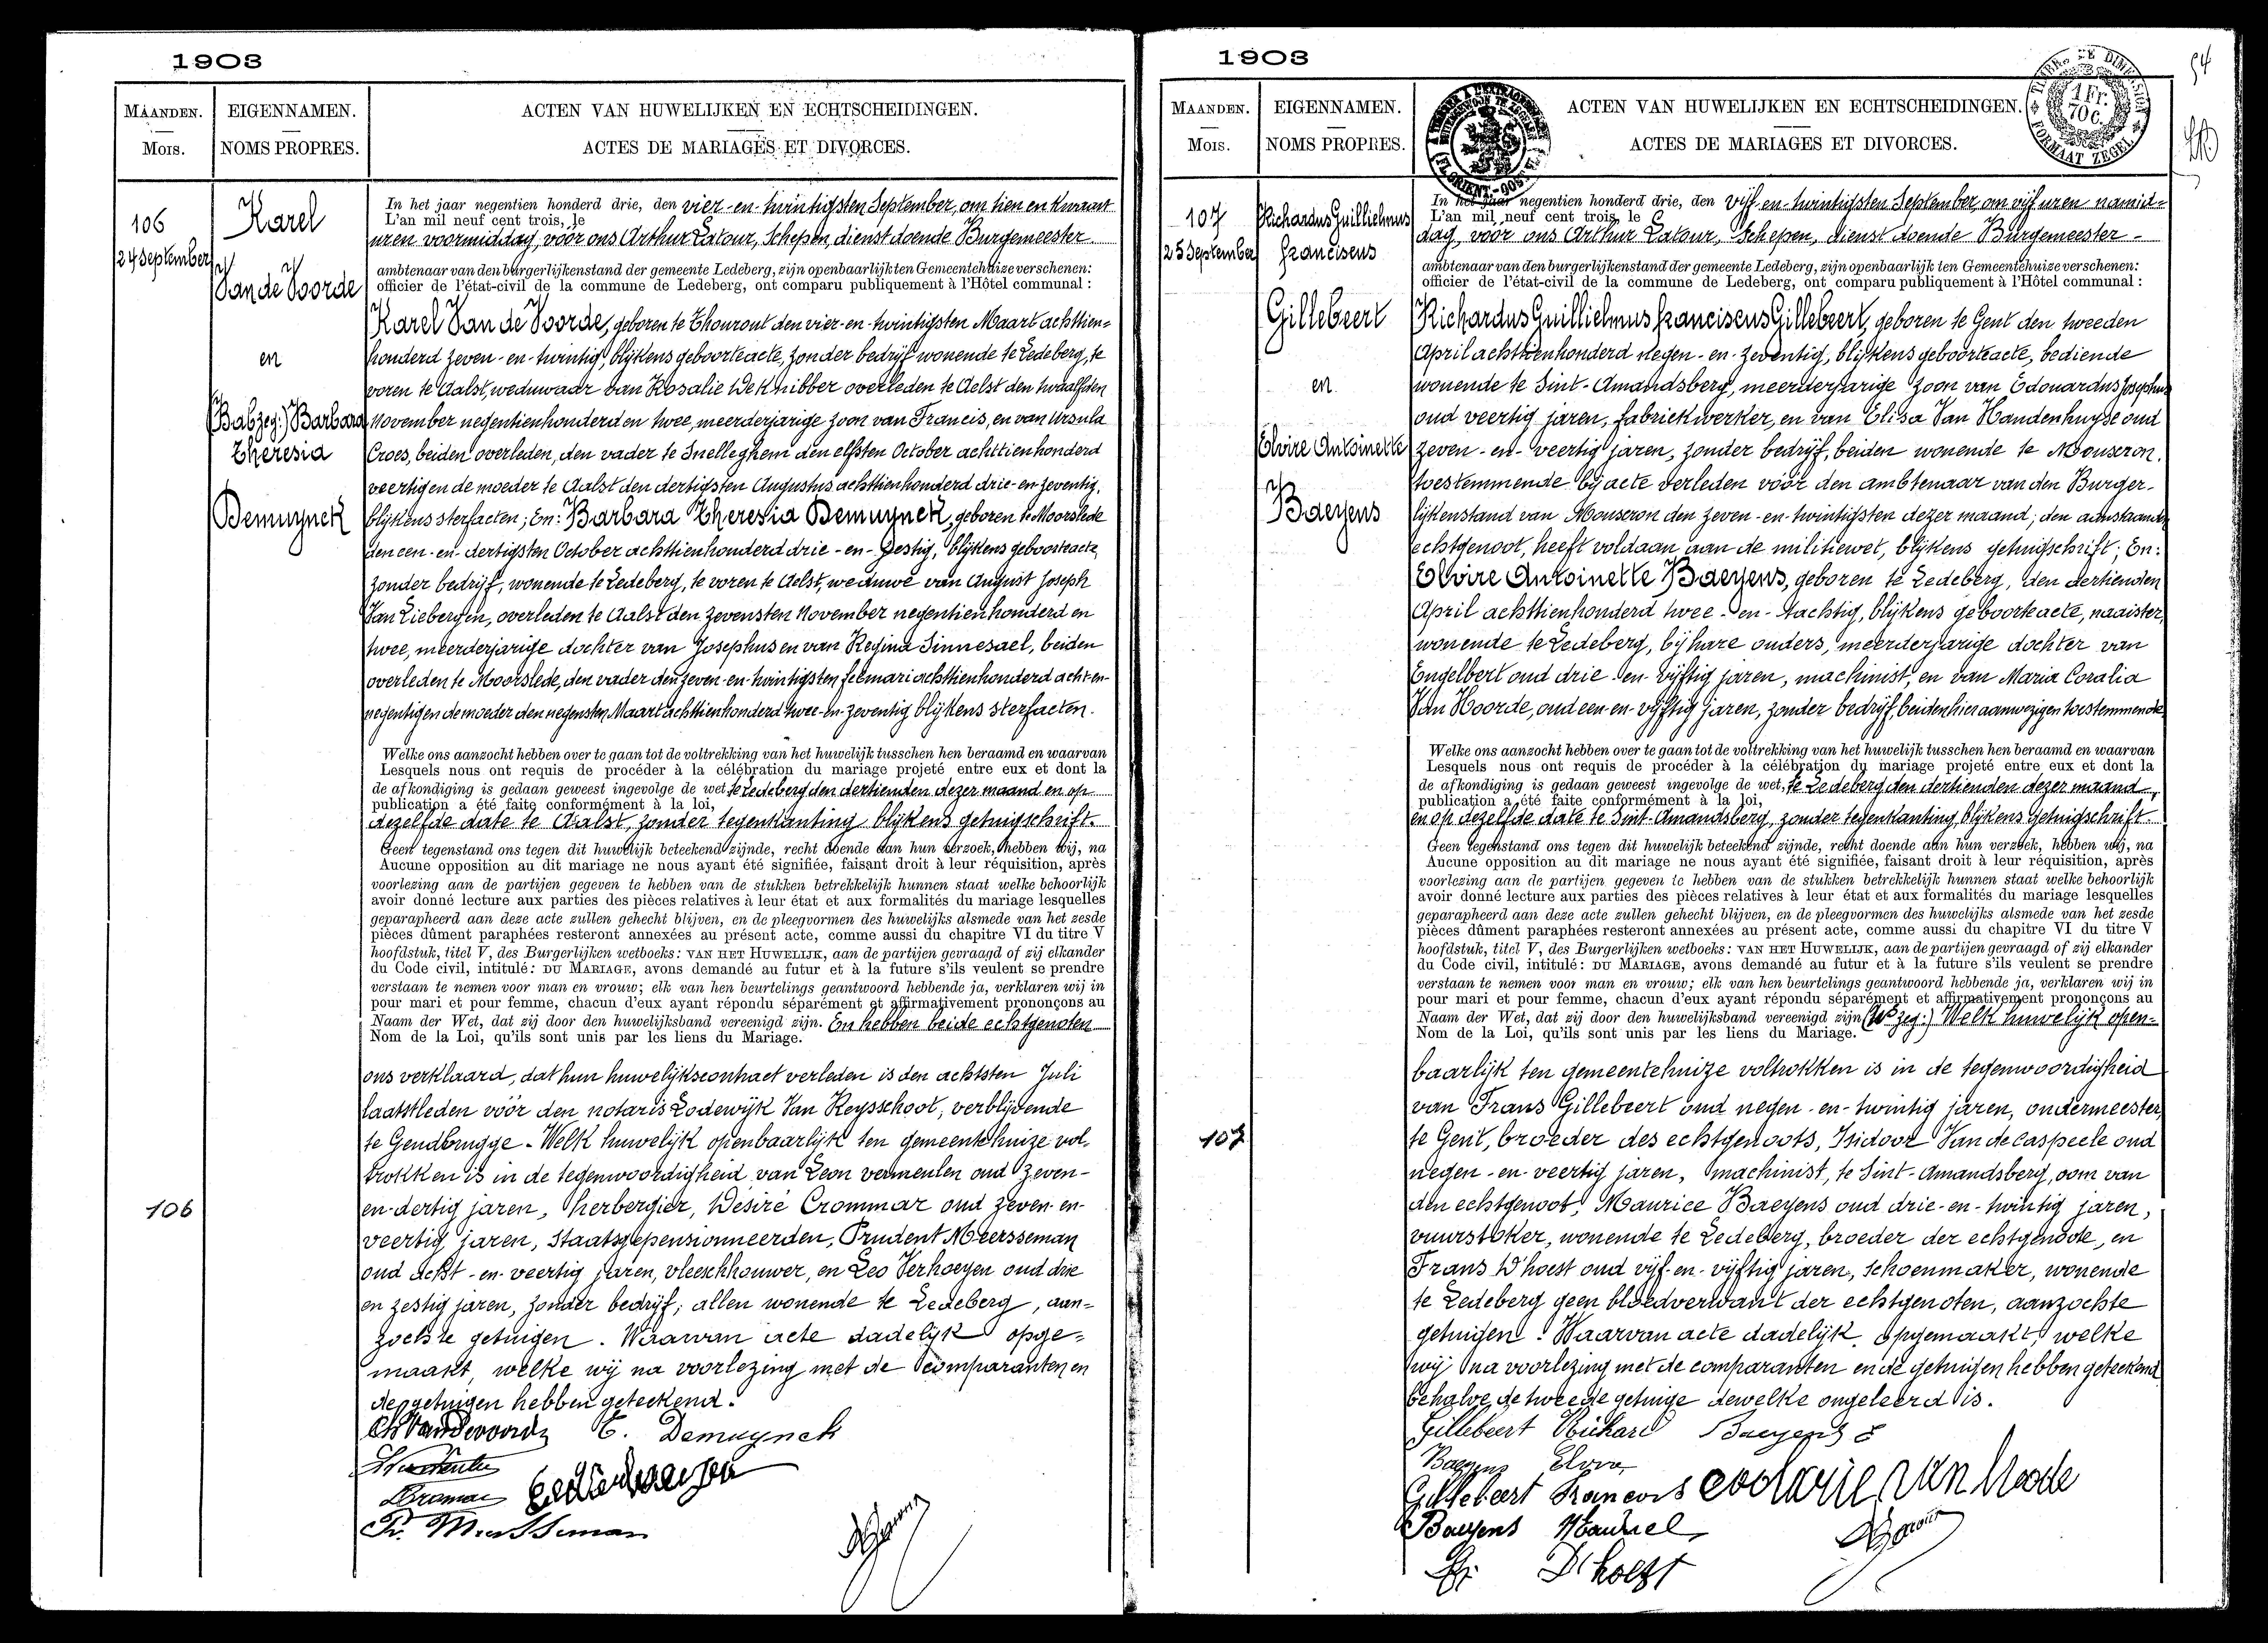 1903
MAANDEN.
Mois.
EIGENNAMEN.
NOMS PROPRES.
ACTEN VAN HUWELIJKEN EN ECHTSCHEIDINGEN.
ACTES DE MARIAGES ET DIVORCES.
106
24 September
Karel
Van de Voorde
en
Barbara
Theresia
Demuynck
In het jaar negentien honderd drie, den vier-en-twintigsten September, om tien en kwaart
L'an mil neuf cent trois, le
uren voormiddag, vóór ons Arthur Latour, Schepen, dienstdoende Burgemeester
ambtenaar van den burgerlijkenstand der gemeente Ledeberg, zijn openbaarlijk ten Gemeentehuize verschenen:
officier de l'état-civil de la commune de Ledeberg, ont comparu publiquement à l'Hôtel communal :
Karel Van de Voorde, geboren te Thouront den vier-en-twintigsten Maart achttien=
honderd zeven-en-twintig, blijkens geboorteacte, zonder bedrijf wonende te Ledeberg, te
voren te Aalst, weduwaar van Rosalie De Knibber overleden te Aelst den twaalfden
November negentienhonderd en twee, meerderjarige zoon van Francis, en van Ursula
Croes, beiden overleden, den vader te Snelleghem den elfsten October achttienhonderd
veertig en de moeder te Aalst den dertigsten Augustus achttienhonderd drie-en-zeventig,
blijkens sterfacten; En: Barbara Theresia Demuynck, geboren te Moorslede
den een-en-dertigsten October achttienhonderd drie-en-zestig, blijkens geboorteacte,
zonder bedrijf, wonende te Ledeberg, te voren te Aelst, weduwe van August Joseph
Van Liebergen, overleden te Aalst den zevensten November negentienhonderd en
twee, meerderjarige dochter van Josephus en van Regina Sinnesael, beiden
overleden te Moorslede, den vader den zeven-en-twintigsten februari achttienhonderd acht-en-
negentig en de moeder den negensten Maart achttienhonderd twee-en-zeventig blijkens sterfacten.
Welke ons aanzocht hebben over te gaan tot de voltrekking van het huwelijk tusschen hen beraamd en waarvan
Lesquels nous ont requis de procéder à la célébration du mariage projeté entre eux et dont la
de afkondiging is gedaan geweest ingevolge de wet, te Ledeberg den dertienden dezer maand en op
publication a été faite conformément à la loi,
dezelfde date te Aalst, zonder tegenkanting blijkens getuigschrift.
Geen tegenstand ons tegen dit huwelijk beteekend zijnde, recht doende aan hun verzoek, hebben wij, na
Aucune opposition au dit mariage ne nous ayant été signifiée, faisant droit à leur réquisition, après
voorlezing aan de partijen gegeven te hebben van de stukken betrekkelijk hunnen staat welke behoorlijk
avoir donné lecture aux parties des pièces relatives à leur état et aux formalités du mariage lesquelles
geparapheerd aan deze acte zullen gehecht blijven, en de pleegvormen des huwelijks alsmede van het zesde
pièces dûment paraphées resteront annexées au présent acte, comme aussi du chapitre VI du titre V
hoofdstuk, titel V, des Burgerlijken wetboeks: VAN HET HUWELIJK, aan de partijen gevraagd of zij elkander
du Code civil, intitulé: DU MARIAGE, avons demandé au futur et à la future s'ils veulent se prendre
verstaan te nemen voor man en vrouw; elk van hen beurtelings geantwoord hebbende ja, verklaren wij in
pour mari et pour femme, chacun d'eux ayant répondu séparément et affirmativement prononçons au
Naam der Wet, dat zij door den huwelijksband vereenigd zijn. En hebben beide echtgenoten
Nom de la Loi, qu'ils sont unis par les liens du Mariage.
ons verklaard, dat hun huwelijkscontract verleden is den achtsten Juli
laatstleden vóór den notaris Lodewijk Van Reysschoot, verblijvende
te Gendbrugge. Welk huwelijk openbaarlijk ten gemeentehuize vol-
trokken is in de tegenwoordigheid van Leon vermeulen oud zeven-
en-dertig jaren, herbergier, Desiré Crommar oud zeven-en-
veertig jaren, Staatsgepensionneerden, Prudent Meersseman
oud acht-en-veertig jaren, vleeschhouwer, en Leo Verhoeyen oud drie
en zestig jaren, zonder bedrijf; allen wonende te Ledeberg, aan=
zochte getuigen. Waarvan acte dadelijk opge=
maakt, welke wij na voorlezing met de comparanten en
de getuigen hebben geteekend.
106
Ch Vandevoorde
Demuynck
1903
MAANDEN.
Mois.
EIGENNAMEN.
NOMS PROPRES.
ACTEN VAN HUWELIJKEN EN ECHTSCHEIDINGEN.
ACTES DE MARIAGES ET DIVORCES.
1 FR.
70 C.
FORMAAT ZEGEL
107
25 September
Richardus Guilliehmus
Franciscus
Gillebeert
en
Elvire Antoinette
Baeyens
In het jaar negentien honderd drie, den vijf-en-twintigsten September, om vijf uren namid=
L'an mil neuf cent trois, le
dag, vóór ons Arthur Latour, Schepen, dienst doende Burgemeester
ambtenaar van den burgerlijkenstand der gemeente Ledeberg, zijn openbaarlijk ten Gemeentehuize verschenen:
officier de l'état-civil de la commune de Ledeberg, ont comparu publiquement à l'Hôtel communal :
Richardus Guilliehmus Franciscus Gillebeert, geboren te Gent den tweeden
April achttienhonderd negen-en-zeventig, blijkens geboorteacte, bediende
wonende te Sint-Amandsberg, meerderjarige zoon van Edouardus Josephus
oud veertig jaren, fabriekwerker, en van Elisa Van Handenhuyse oud
zeven-en-veertig jaren, zonder bedrijf, beiden wonende te Mouseron,
toestemmende bij acte verleden vóór den ambtenaar van den Burger-
lijkenstand van Mouseron den zeven-en-twintigsten dezer maand; den aanstaanden
echtgenoot, heeft voldaan aan de militiewet, blijkens getuigschrift; En:
Elvire Antoinette Baeyens, geboren te Ledeberg, den dertienden
April achttienhonderd twee-en-tachtig, blijkens geboorteacte, naaister,
wonende te Ledeberg, bij hare ouders, meerderjarige dochter van
Engelbert oud drie-en-vijftig jaren, machinist, en van Maria Coralia
Van Hoorde, oud een-en-vijftig jaren, zonder bedrijf, beiden hier aanwezig en toestemmende.
Welke ons aanzocht hebben over te gaan tot de voltrekking van het huwelijk tusschen hen beraamd en waarvan
Lesquels nous ont requis de procéder à la célébration du mariage projeté entre eux et dont la
de afkondiging is gedaan geweest ingevolge de wet, te Ledeberg den dertienden dezer maand,
publication a été faite conformément à la loi,
en op dezelfde date te Sint-Amandsberg, zonder tegenkanting blijkens getuigschrift.
Geen tegenstand ons tegen dit huwelijk beteekend zijnde, recht doende aan hun verzoek, hebben wij, na
Aucune opposition au dit mariage ne nous ayant été signifiée, faisant droit à leur réquisition, après
voorlezing aan de partijen gegeven te hebben van de stukken betrekkelijk hunnen staat welke behoorlijk
avoir donné lecture aux parties des pièces relatives à leur état et aux formalités du mariage lesquelles
geparapheerd aan deze acte zullen gehecht blijven, en de pleegvormen des huwelijks alsmede van het zesde
pièces dûment paraphées resteront annexées au présent acte, comme aussi du chapitre VI du titre V
hoofdstuk, titel V, des Burgerlijken wetboeks: VAN HET HUWELIJK, aan de partijen gevraagd of zij elkander
du Code civil, intitulé: DU MARIAGE, avons demandé au futur et à la future s'ils veulent se prendre
verstaan te nemen voor man en vrouw; elk van hen beurtelings geantwoord hebbende ja, verklaren wij in
pour mari et pour femme, chacun d'eux ayant répondu séparément et affirmativement prononçons au
Naam der Wet, dat zij door den huwelijksband vereenigd zijn Welk huwelijk open=
Nom de la Loi, qu'ils sont unis par les liens du Mariage.
baarlijk ten gemeentehuize voltrokken is in de tegenwoordigheid
van Frans Gillebeert oud negen-en-twintig jaren, ondermeester,
te Gent, broeder des echtgenoots, Isidoor Van de Caspeele oud
negen-en-veertig jaren, machinist, te Sint-Amandsberg, oom van
den echtgenoot, Maurice Baeyens oud drie-en-twintig jaren,
vuurstoker, wonende te Ledeberg, broeder der echtgenoote, en
Frans D'hoest oud vijf-en-vijftig jaren, schoenmaker, wonende
te Ledeberg geen bloedverwant der echtgenoten, aanzochte
getuigen. Waarvan acte dadelijk opgemaakt, welke
wij na voorlezing met de comparanten en de getuigen hebben geteekend
behalve de tweede getuige dewelke ongeleerd is.
107
Gillebeert Richard Baeyens E
Baeyens Elvira
Gillebeert Francois
Baeyens
D'hoest